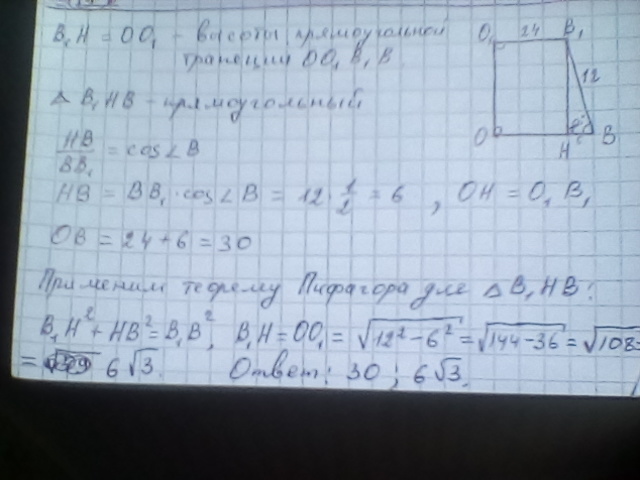 B₁H = OO₁ - высоты прямоугольной
трапеции OO₁B₁B
△ B₁HB - прямоугольный
HB/BB₁ = cos∠B
HB = BB₁·cos∠B = 12·1/2 = 6 , OH = O₁B₁
OB = 24+6 = 30
Применим теорему Пифагора для △B₁HB:
B₁H² + HB² = B₁B², B₁H = OO₁ = √(12²-6²) = √(144-36) = √108 =
= 6√3. Ответ: 30 ; 6√3.
O₁ 24 B₁
12
O H B